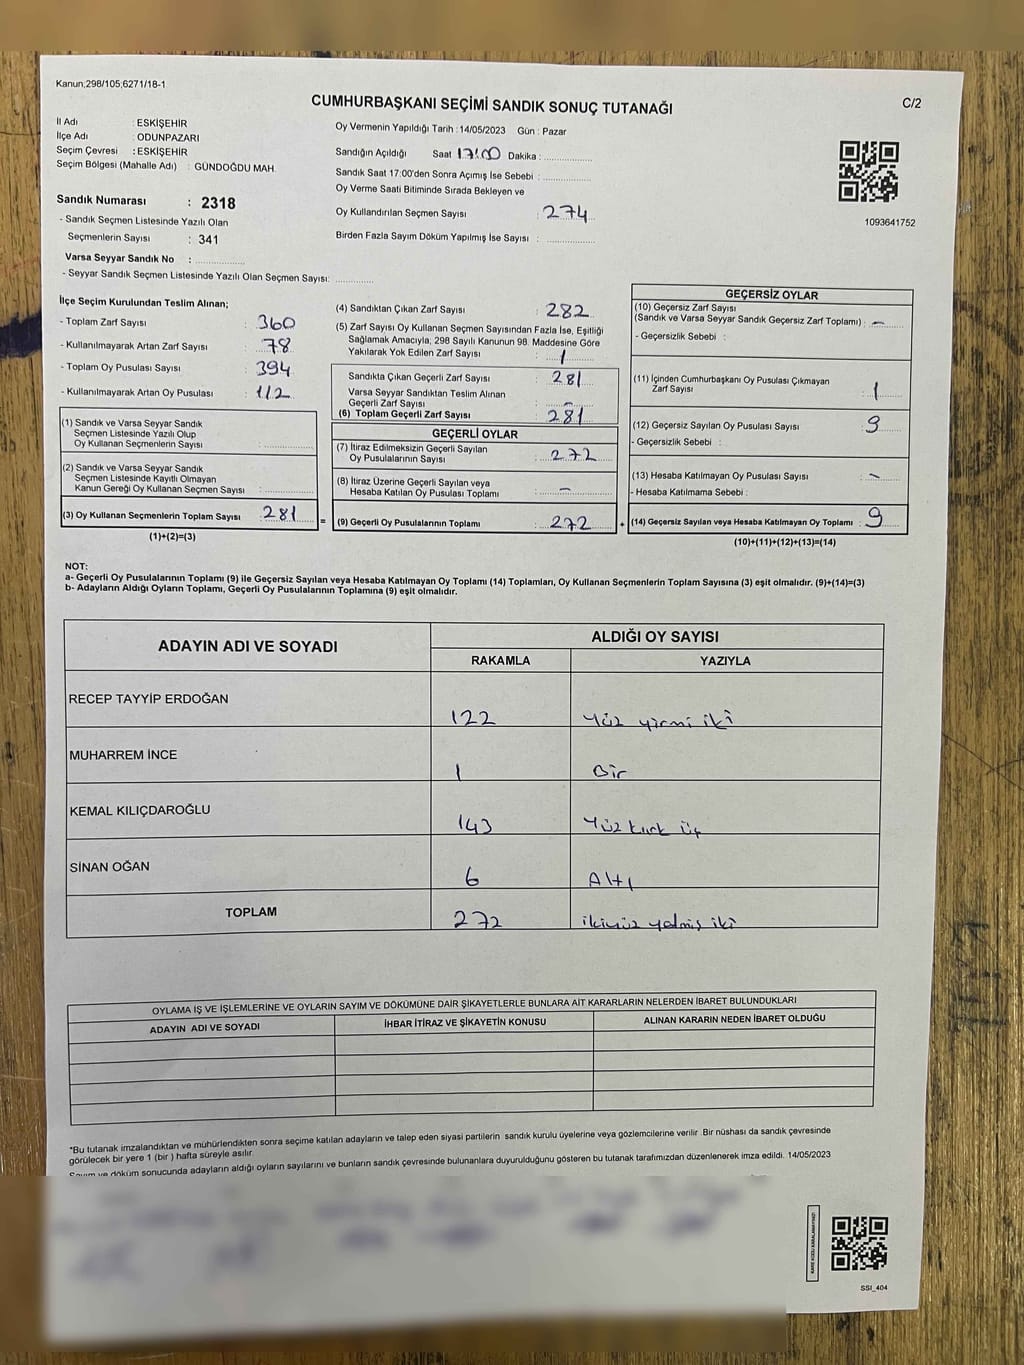 Kanun;298/105;6271/18-1
CUMHURBAŞKANI SEÇİMİ SANDIK SONUÇ TUTANAĞI
C/2
İl Adı : ESKİŞEHİR
İlçe Adı : ODUNPAZARI
Seçim Çevresi : ESKİŞEHİR
Seçim Bölgesi (Mahalle Adı) : GÜNDOĞDU MAH.
Sandık Numarası : 2318
- Sandık Seçmen Listesinde Yazılı Olan
Seçmenlerin Sayısı : 341
Varsa Seyyar Sandık No :
- Seyyar Sandık Seçmen Listesinde Yazılı Olan Seçmen Sayısı:
Oy Vermenin Yapıldığı Tarih : 14/05/2023 Gün : Pazar
Sandığın Açıldığı Saat 17:00 Dakika :
Sandık Saat 17:00'den Sonra Açımış İse Sebebi :
Oy Verme Saati Bitiminde Sırada Bekleyen ve
Oy Kullandırılan Seçmen Sayısı : 274
Birden Fazla Sayım Döküm Yapılmış İse Sayısı :
1093641752
İlçe Seçim Kurulundan Teslim Alınan;
- Toplam Zarf Sayısı : 360
- Kullanılmayarak Artan Zarf Sayısı : 78
- Toplam Oy Pusulası Sayısı : 394
- Kullanılmayarak Artan Oy Pusulası : 112
(1) Sandık ve Varsa Seyyar Sandık
Seçmen Listesinde Yazılı Olup
Oy Kullanan Seçmenlerin Sayısı :
(2) Sandık ve Varsa Seyyar Sandık
Seçmen Listesinde Kayıtlı Olmayan
Kanun Gereği Oy Kullanan Seçmen Sayısı :
(3) Oy Kullanan Seçmenlerin Toplam Sayısı : 281
(1)+(2)=(3)
=
(4) Sandıktan Çıkan Zarf Sayısı : 282
(5) Zarf Sayısı Oy Kullanan Seçmen Sayısından Fazla İse, Eşitliği
Sağlamak Amacıyla; 298 Sayılı Kanunun 98. Maddesine Göre
Yakılarak Yok Edilen Zarf Sayısı : 1
Sandıkta Çıkan Geçerli Zarf Sayısı : 281
Varsa Seyyar Sandıktan Teslim Alınan
Geçerli Zarf Sayısı : –
(6) Toplam Geçerli Zarf Sayısı : 281
GEÇERLİ OYLAR
(7) İtiraz Edilmeksizin Geçerli Sayılan
Oy Pusulalarının Sayısı : 272
(8) İtiraz Üzerine Geçerli Sayılan veya
Hesaba Katılan Oy Pusulası Toplamı : –
(9) Geçerli Oy Pusulalarının Toplamı : 272
+
GEÇERSİZ OYLAR
(10) Geçersiz Zarf Sayısı
(Sandık ve Varsa Seyyar Sandık Geçersiz Zarf Toplamı) : –
- Geçersizlik Sebebi :
(11) İçinden Cumhurbaşkanı Oy Pusulası Çıkmayan
Zarf Sayısı : 1
(12) Geçersiz Sayılan Oy Pusulası Sayısı : 9
- Geçersizlik Sebebi :
(13) Hesaba Katılmayan Oy Pusulası Sayısı : –
- Hesaba Katılmama Sebebi :
(14) Geçersiz Sayılan veya Hesaba Katılmayan Oy Toplamı : 9
(10)+(11)+(12)+(13)=(14)
NOT:
a- Geçerli Oy Pusulalarının Toplamı (9) ile Geçersiz Sayılan veya Hesaba Katılmayan Oy Toplamı (14) Toplamları, Oy Kullanan Seçmenlerin Toplam Sayısına (3) eşit olmalıdır. (9)+(14)=(3)
b- Adayların Aldığı Oyların Toplamı, Geçerli Oy Pusulalarının Toplamına (9) eşit olmalıdır.
ADAYIN ADI VE SOYADI
ALDIĞI OY SAYISI
RAKAMLA YAZIYLA
RECEP TAYYİP ERDOĞAN 122 Yüz yirmi iki
MUHARREM İNCE 1 Bir
KEMAL KILIÇDAROĞLU 143 Yüz kırk üç
SİNAN OĞAN 6 Altı
TOPLAM 272 ikiyüz yetmiş iki
OYLAMA İŞ VE İŞLEMLERİNE VE OYLARIN SAYIM VE DÖKÜMÜNE DAİR ŞİKAYETLERLE BUNLARA AİT KARARLARIN NELERDEN İBARET BULUNDUKLARI
ADAYIN ADI VE SOYADI İHBAR İTİRAZ VE ŞİKAYETİN KONUSU ALINAN KARARIN NEDEN İBARET OLDUĞU
*Bu tutanak imzalandıktan ve mühürlendikten sonra seçime katılan adayların ve talep eden siyasi partilerin sandık kurulu üyelerine veya gözlemcilerine verilir. Bir nüshası da sandık çevresinde
görülecek bir yere 1 (bir) hafta süreyle asılır.
Sayım ve döküm sonucunda adayların aldığı oyların sayılarını ve bunların sandık çevresinde bulunanlara duyurulduğunu gösteren bu tutanak tarafımızdan düzenlenerek imza edildi. 14/05/2023
SSI_404